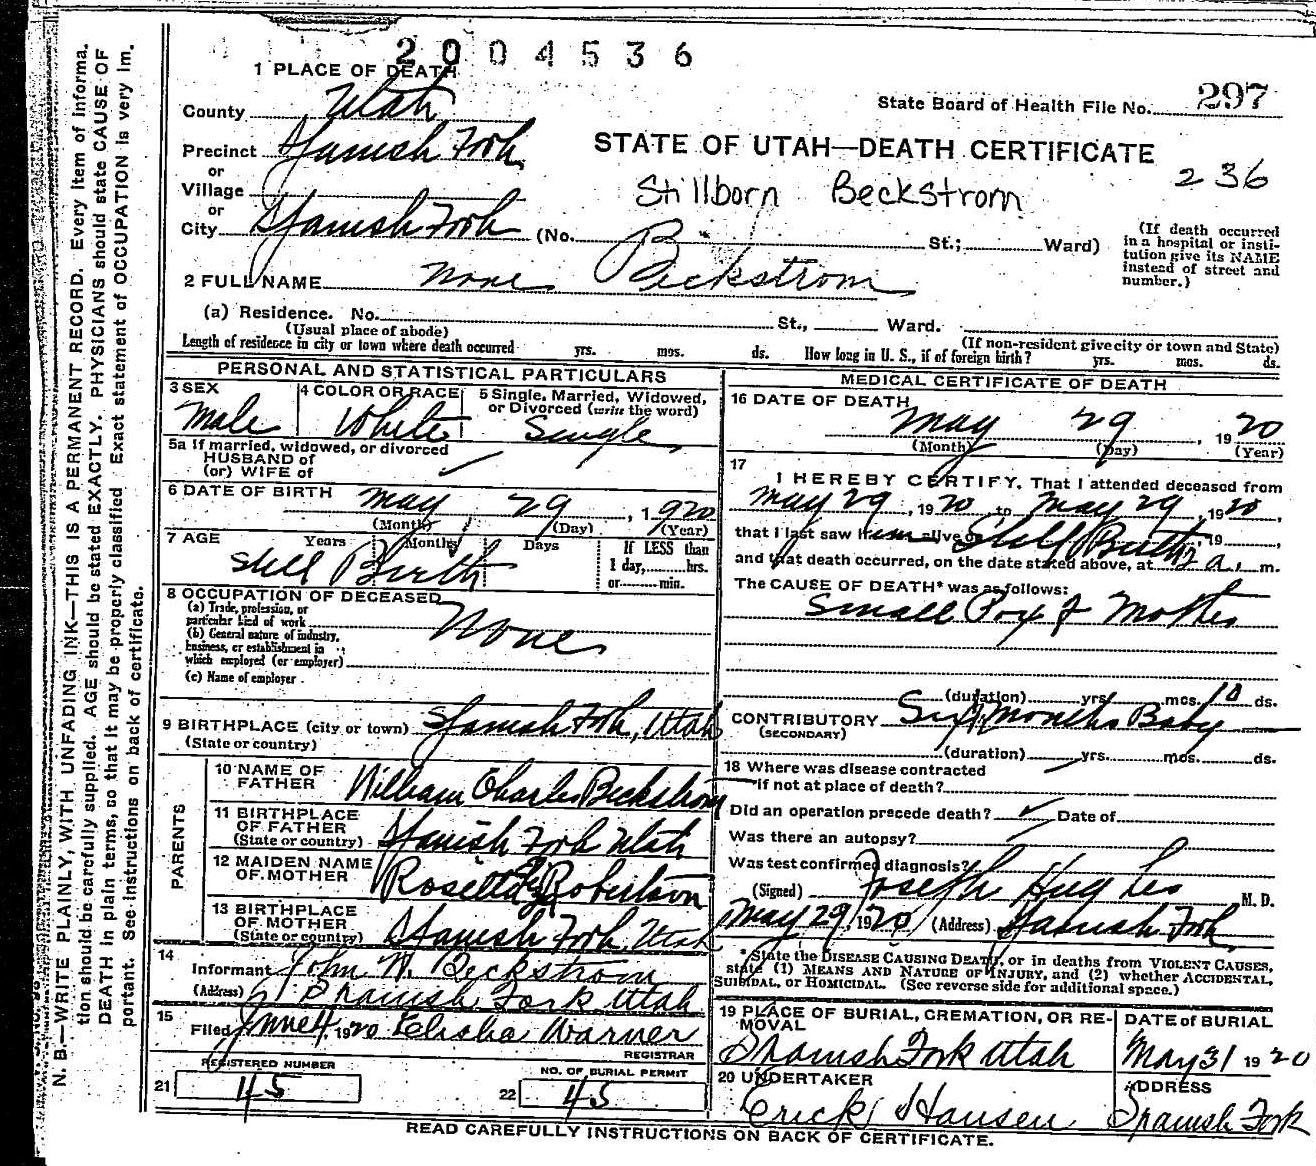 2004536
1 PLACE OF DEATH
State Board of Health File No. 297
County Utah
Precinct Spanish Fork
STATE OF UTAH—DEATH CERTIFICATE
236
or
Village
Stillborn Beckstrom
or
City Spanish Fork (No. St.; Ward)
(If death occurred
in a hospital or insti-
tution give its NAME
instead of street and
number.)
2 FULL NAME None Beckstrom
(a) Residence. No. St., Ward.
(Usual place of abode)
(If non-resident give city or town and State)
Length of residence in city or town where death occurred yrs. mos. ds. How long in U. S., if of foreign birth? yrs. mos. ds.
PERSONAL AND STATISTICAL PARTICULARS
3 SEX
Male
4 COLOR OR RACE
White
5 Single, Married, Widowed,
or Divorced (write the word)
Single
5a If married, widowed, or divorced
HUSBAND of
(or) WIFE of
6 DATE OF BIRTH May 29, 1920
(Month) (Day) (Year)
7 AGE Years Months Days
If LESS than
1 day, hrs.
or min.
Still Birth
8 OCCUPATION OF DECEASED
(a) Trade, profession, or
particular kind of work None
(b) General nature of industry,
business, or establishment in
which employed (or employer)
(c) Name of employer
9 BIRTHPLACE (city or town) Spanish Fork, Utah
(State or country)
PARENTS
10 NAME OF
FATHER William Charles Beckstrom
11 BIRTHPLACE
OF FATHER
(State or country) Spanish Fork Utah
12 MAIDEN NAME
OF MOTHER Rosetta Robertson
13 BIRTHPLACE
OF MOTHER
(State or country) Spanish Fork Utah
14
Informant John W. Beckstrom
(Address) Spanish Fork Utah
15
Filed June 4, 1920 Elisha Warner
REGISTRAR
REGISTERED NUMBER
21 45
NO. OF BURIAL PERMIT
22 45
MEDICAL CERTIFICATE OF DEATH
16 DATE OF DEATH
May 29, 1920
(Month) (Day) (Year)
17
I HEREBY CERTIFY, That I attended deceased from
May 29, 1920, to May 29, 1920,
that I last saw him alive on Still Birth, 19
and that death occurred, on the date stated above, at 2 a. m.
The CAUSE OF DEATH* was as follows:
Small Pox of Mother
(duration) yrs. mos. 10 ds.
CONTRIBUTORY Six Months Baby
(SECONDARY)
(duration) yrs. mos. ds.
18 Where was disease contracted
if not at place of death?
Did an operation precede death? Date of
Was there an autopsy?
Was test confirmed diagnosis?
(Signed) Joseph Hughes M. D.
May 29, 1920 (Address) Spanish Fork
*State the DISEASE CAUSING DEATH, or in deaths from VIOLENT CAUSES,
state (1) MEANS AND NATURE OF INJURY, and (2) whether ACCIDENTAL,
SUICIDAL, or HOMICIDAL. (See reverse side for additional space.)
19 PLACE OF BURIAL, CREMATION, OR RE-
MOVAL
Spanish Fork Utah
DATE of BURIAL
May 31 1920
20 UNDERTAKER
Erick Hansen
ADDRESS
Spanish Fork
READ CAREFULLY INSTRUCTIONS ON BACK OF CERTIFICATE.
N. B.—WRITE PLAINLY, WITH UNFADING INK—THIS IS A PERMANENT RECORD. Every item of informa-
tion should be carefully supplied. AGE should be stated EXACTLY. PHYSICIANS should state CAUSE OF
DEATH in plain terms, so that it may be properly classified Exact statement of OCCUPATION is very im-
portant. See instructions on back of certificate.